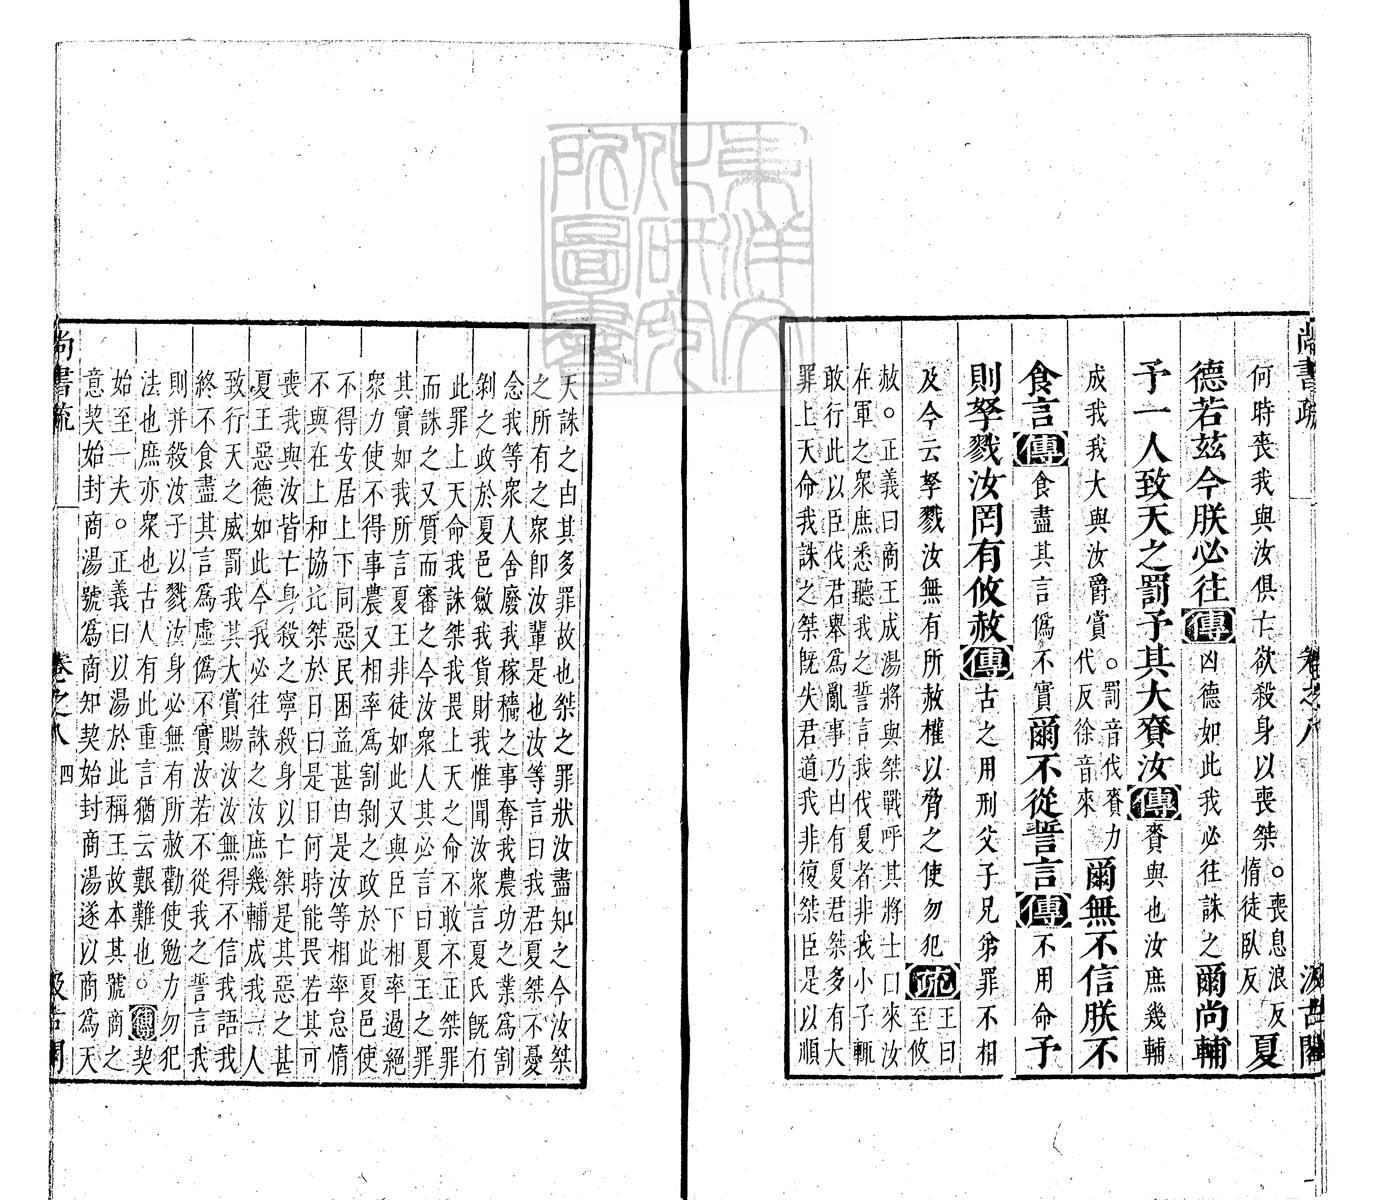 尚書疏 卷之八 汲古閣
何時喪我與汝俱亡欲殺身以喪桀。喪息浪反惰徒臥反夏
德若茲今朕必往傳凶德如此我必往誅之爾尚輔
予一人致天之罰予其大賚汝傳賚與也汝庶幾輔
成我我大與汝爵賞。罰音伐賚力代反徐音來爾無不信朕不
食言傳食盡其言僞不實爾不從誓言傳不用命予
則孥戮汝罔有攸赦傳古之用刑父子兄弟罪不相
及今云孥戮汝無有所赦權以脅之使勿犯疏王曰至攸
赦。正義曰商王成湯將與桀戰呼其將士曰來汝
在軍之衆庶悉聽我之誓言我伐夏者非我小子輒
敢行此以臣伐君舉爲亂事乃由有夏君桀多有大
罪上天命我誅之桀旣失君道我非復桀臣是以順
天誅之由其多罪故也桀之罪狀汝盡知之今汝桀
之所有之衆卽汝輩是也汝等言曰我君夏桀不憂
念我等衆人舍廢我稼穡之事奪我農功之業爲割
剝之政於夏邑斂我貨財我惟聞汝衆言夏氏旣有
此罪上天命我誅桀我畏上天之命不敢不正桀罪
而誅之又質而審之今汝衆人其必言曰夏王之罪
其實如我所言夏王非徒如此又與臣下相率遏絕
衆力使不得事農又相率爲割剝之政於此夏邑使
不得安居上下同惡民困益甚由是汝等相率怠惰
不與在上和協比桀於日曰是日何時能喪若其可
喪我與汝皆亡身殺之寧殺身以亡桀是其惡之甚
夏王惡德如此今我必往誅之汝庶幾輔成我一人
致行天之威罰我其大賞賜汝汝無得不信我語我
終不食盡其言爲虛僞不實汝若不從我之誓言我
則并殺汝子以戮汝身必無有所赦勸使勉力勿犯
法也庶亦衆也古人有此重言猶云艱難也。傳契
始至一夫。正義曰以湯於此稱王故本其號商之
意契始封商湯號爲商知契始封商湯遂以商爲天
尚書疏 卷之八 四 汲古閣
東洋文化研究所圖書